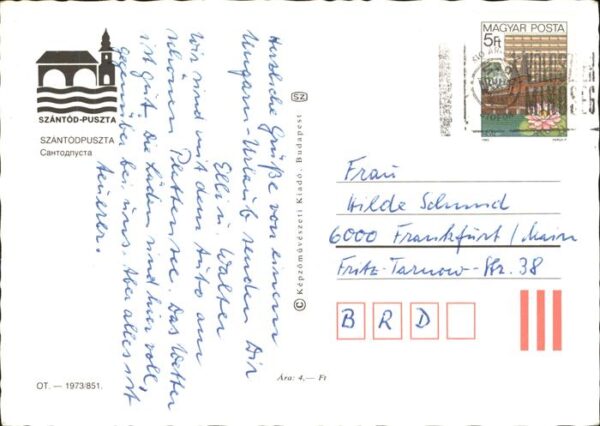 SZÁNTÓD-PUSZTA
SZÁNTÓDPUSZTA
Сантодпуста
Herzliche Grüße von einem
Ungarn-Urlaub senden Dir
Elli u. Walter
Wir sind mit dem Auto am
schönen Plattensee. Das Wetter
ist gut. Die Läden sind hier voll,
gegenüber bei uns. Aber alles ist
teuerer.
OT. — 1973/851.
SZ
© Képzőművészeti Kiadó, Budapest
Ára: 4,— Ft
MAGYAR POSTA
5Ft
Frau
Hilde Schmid
6000 Frankfurt / Main
Fritz-Tarnow-Str. 38
B R D